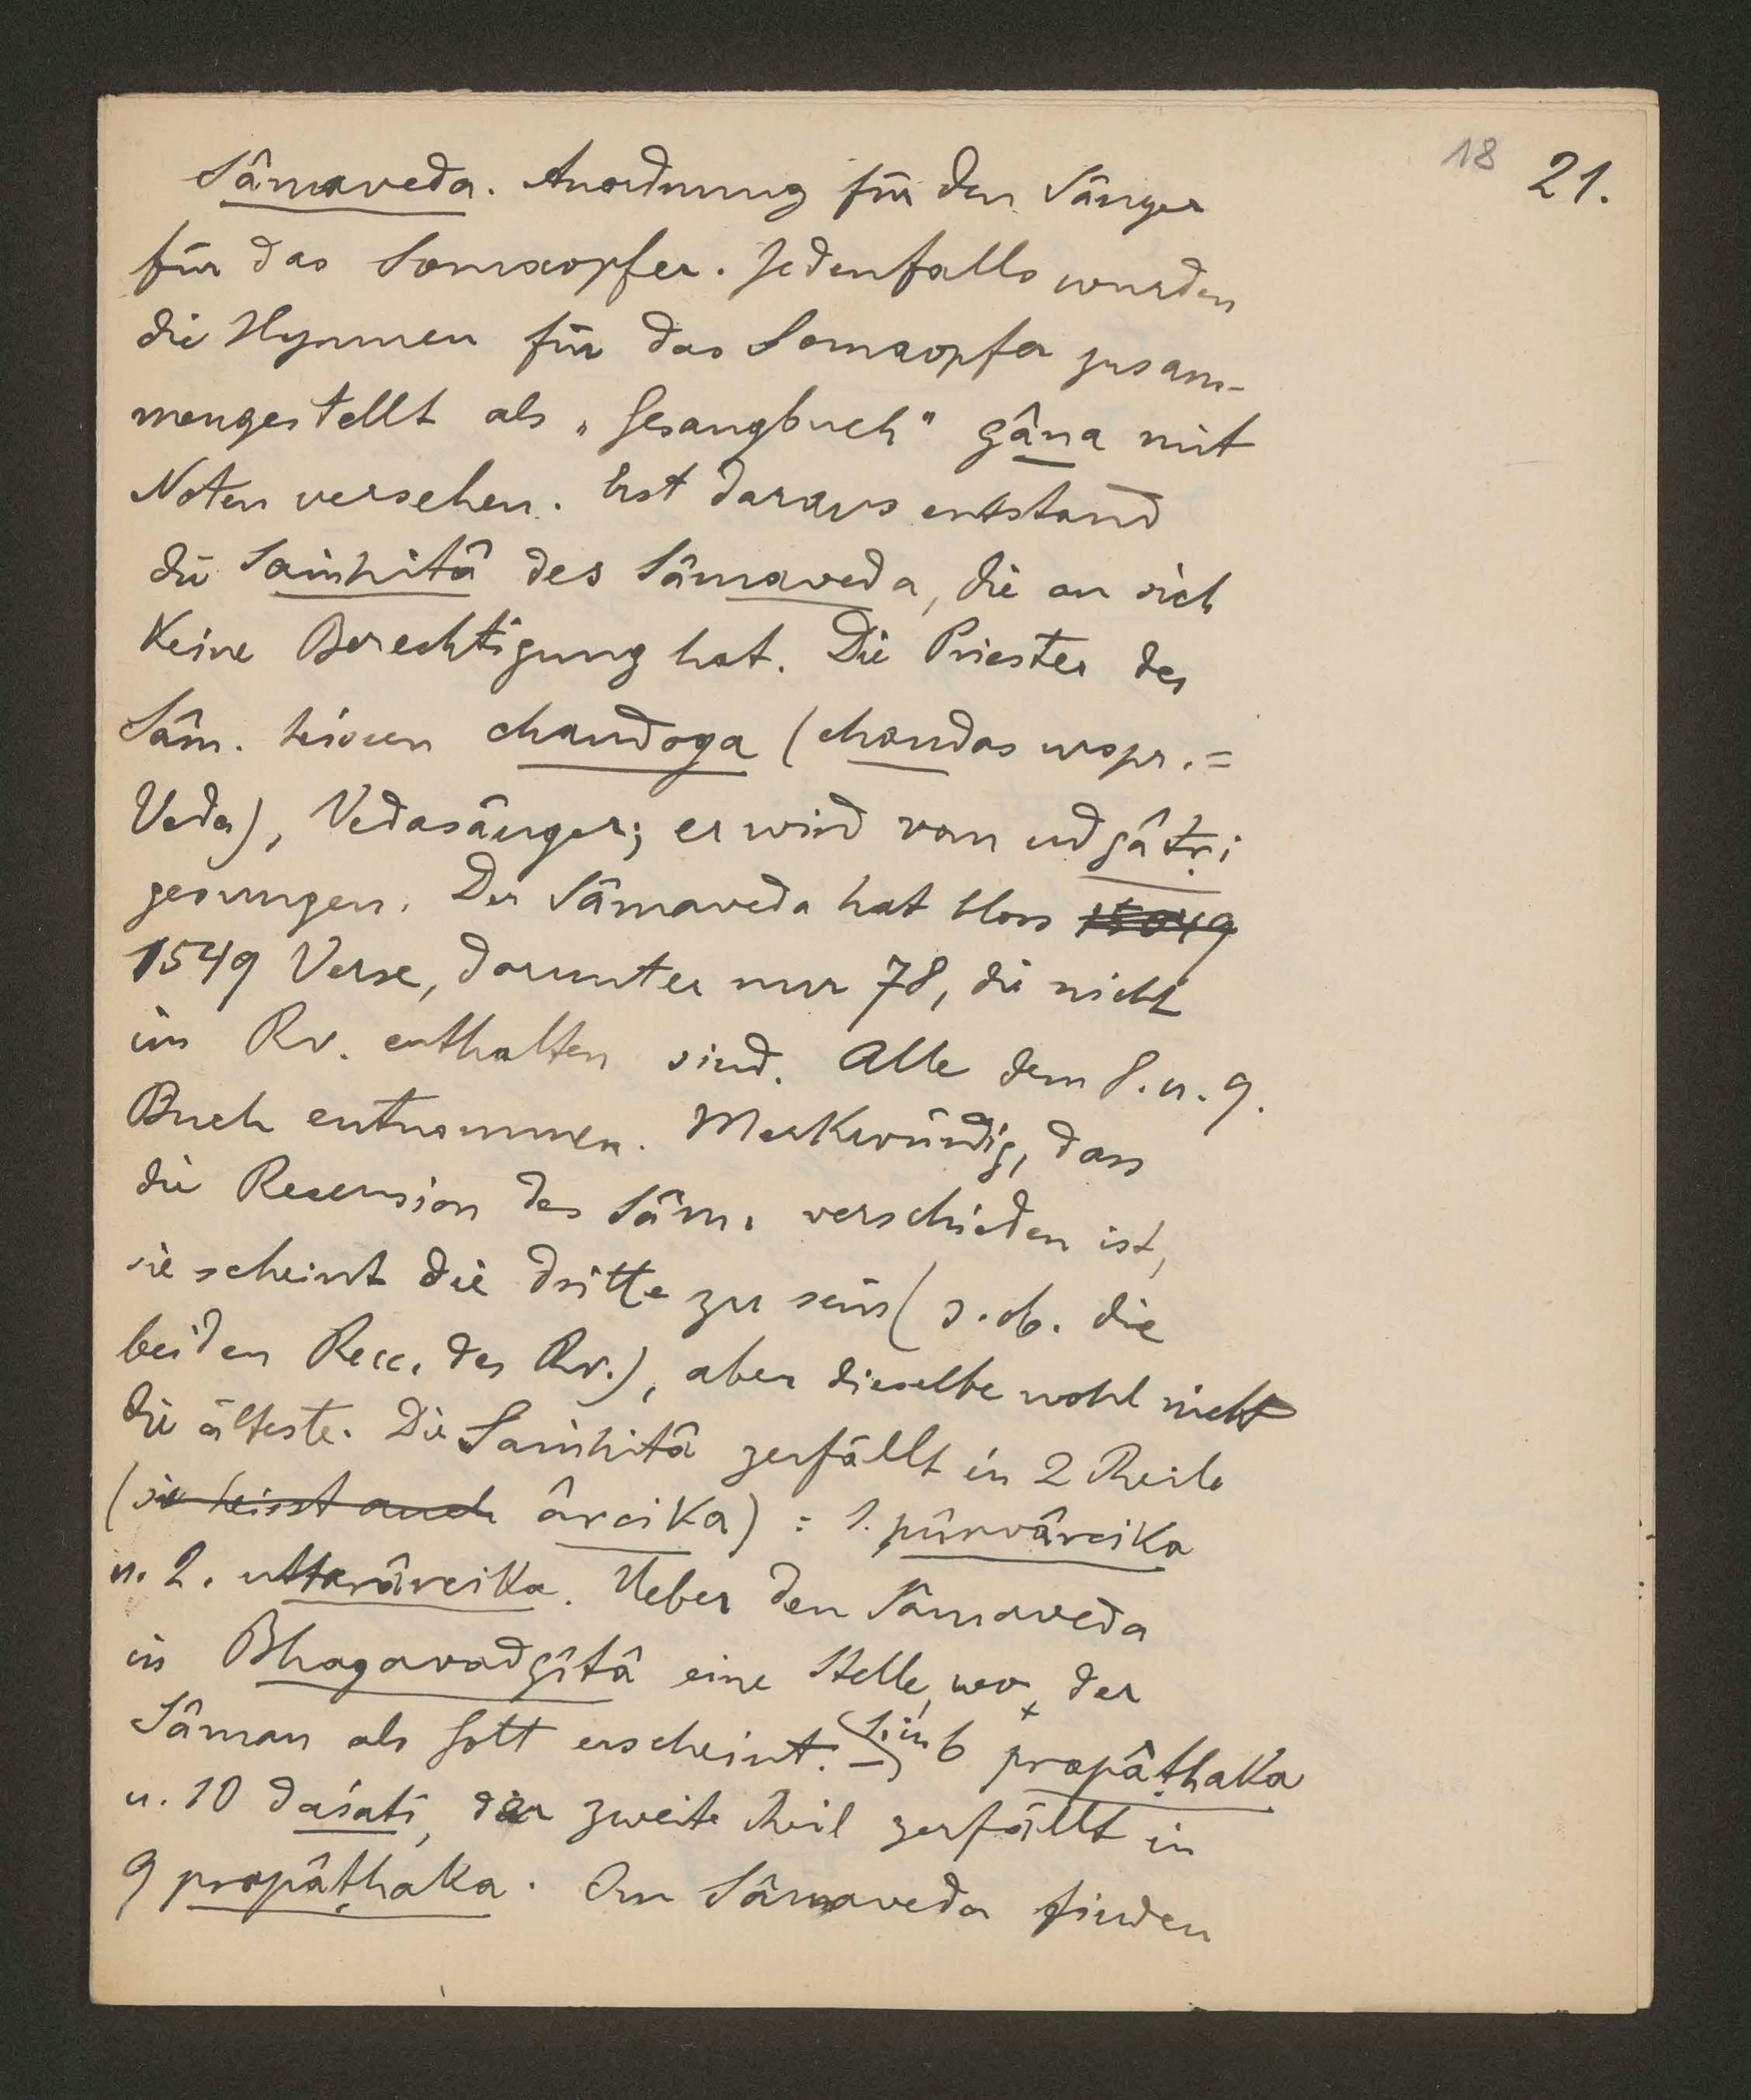 18 21.
Sâmaveda. Anordnung für den Sänger
für das Somaopfer. Jedenfalls wurden
die Hymnen für das Somaopfer zusam-
mengestellt als „Gesangbuch" gâna mit
Noten versehen. Erst daraus entstand
die Saṁhitâ des Sâmaveda, die an sich
keine Berechtigung hat. Die Priester des
Sâm. heissen chandoga (chandas urspr. =
Veda), Vedasänger; er wird vom udgâtṛi
gesungen. Der Sâmaveda hat bloss 15049
1549 Verse, darunter nur 78, die nicht
im Rv. enthalten sind. Alle dem 8. u. 9.
Buch entnommen. Merkwürdig, dass
die Recension des Sâm. verschieden ist,
sie scheint die dritte zu sein (s. ob. die
beiden Recc. des Rv.), aber dieselbe wohl nicht
die älteste. Die Saṁhitâ zerfällt in 2 Theile
(sie heisst auch ârcika) : 1. pûrvârcika
u. 2. uttarârcika. Ueber den Sâmaveda
in Bhagavadgîtâ eine Stelle, wo der
Sâman als Gott erscheint. 1. in 6 prapâṭhaka
u. 10 daśati, der zweite Theil zerfällt in
9 prapâṭhaka. Am Sâmaveda finden